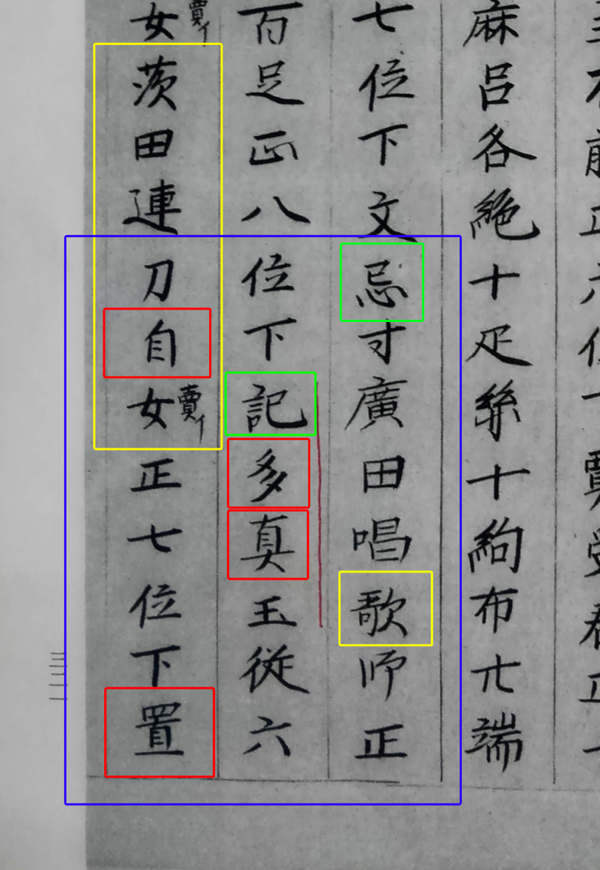 麻呂各絁十疋絲十絇布卄端
七位下文忌寸廣田唱歌師正
百足正八位下記多真玉從六
女賣イ茨田連刀自女賣イ正七位下置